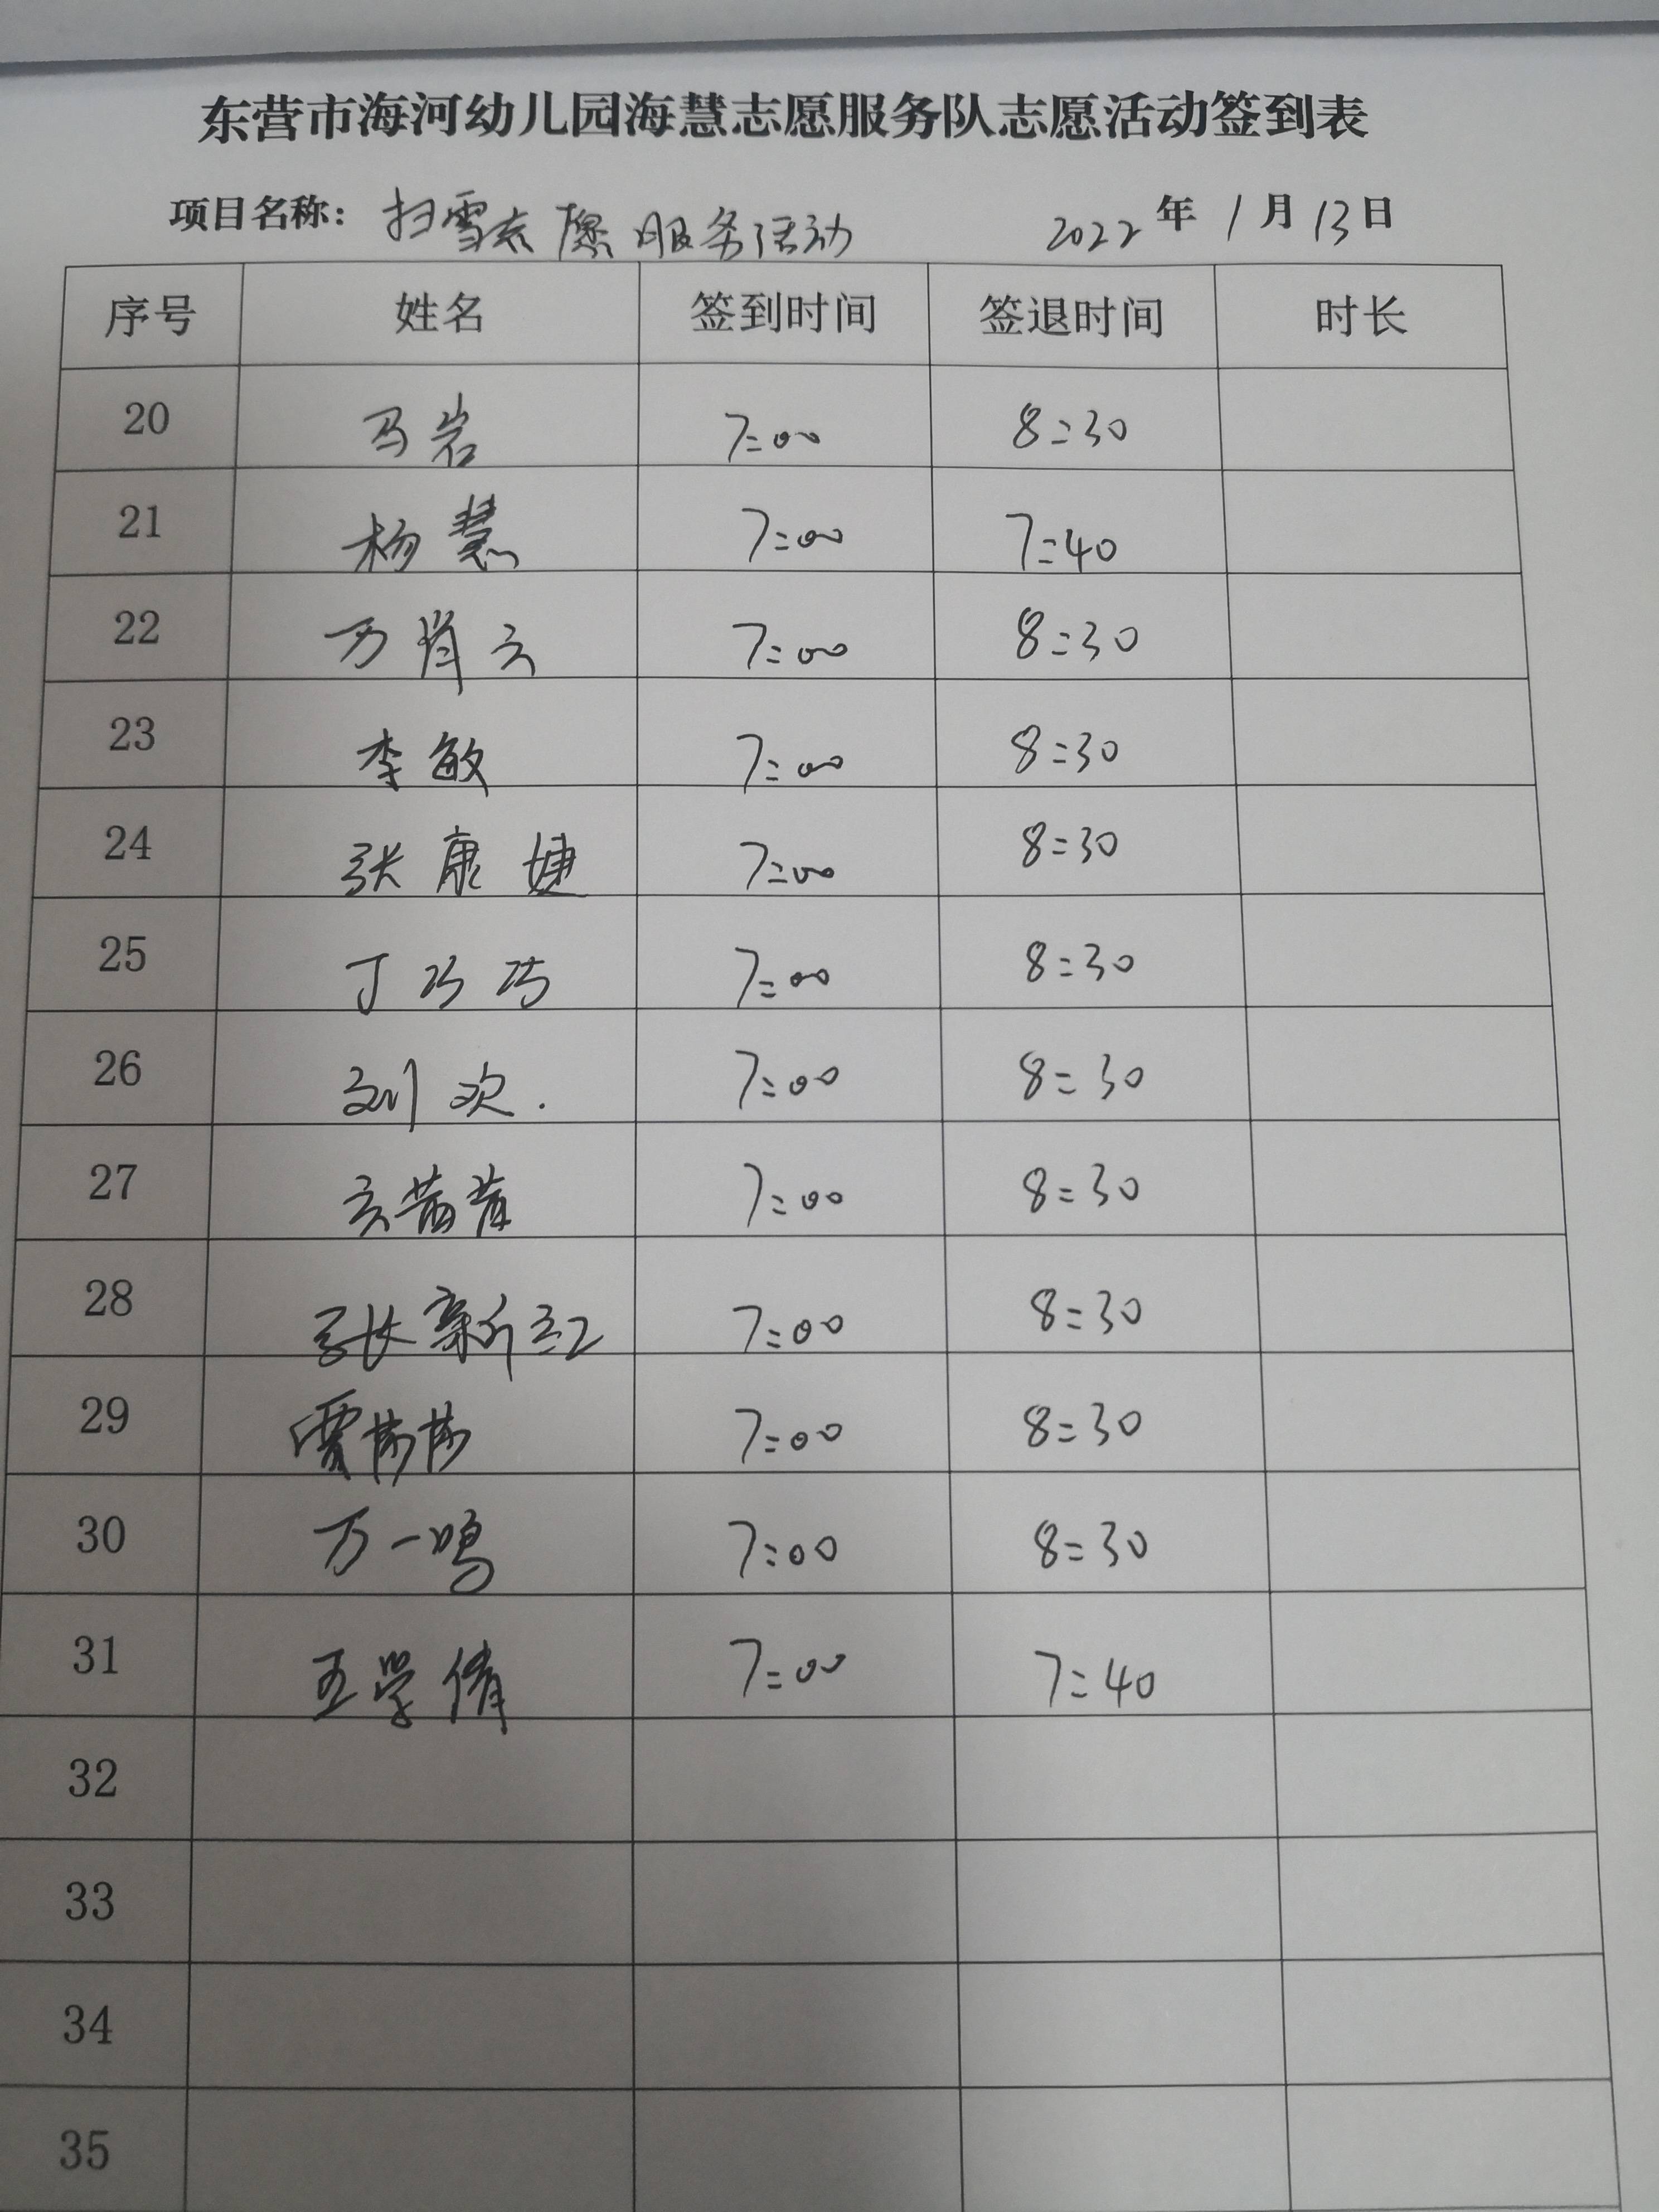 东营市海河幼儿园海慧志愿服务队志愿活动签到表
项目名称：扫雪志愿服务活动 2022年1月13日
序号 姓名 签到时间 签退时间 时长
20 马岩 7:00 8:30
21 杨慧 7:00 7:40
22 万肖云 7:00 8:30
23 李敏 7:00 8:30
24 张康婕 7:00 8:30
25 丁巧巧 7:00 8:30
26 刘欢. 7:00 8:30
27 7:00 8:30
28 张新红 7:00 8:30
29 贾莎莎 7:00 8:30
30 万一鸣 7:00 8:30
31 王学倩 7:00 7:40
32
33
34
35